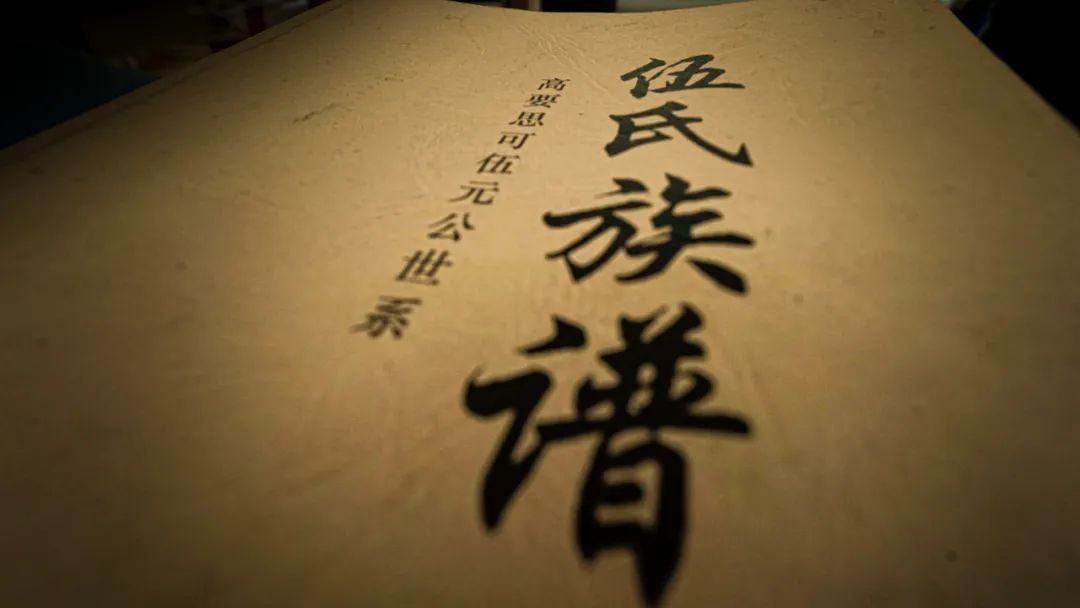 伍氏族谱
高要思可伍元公世系